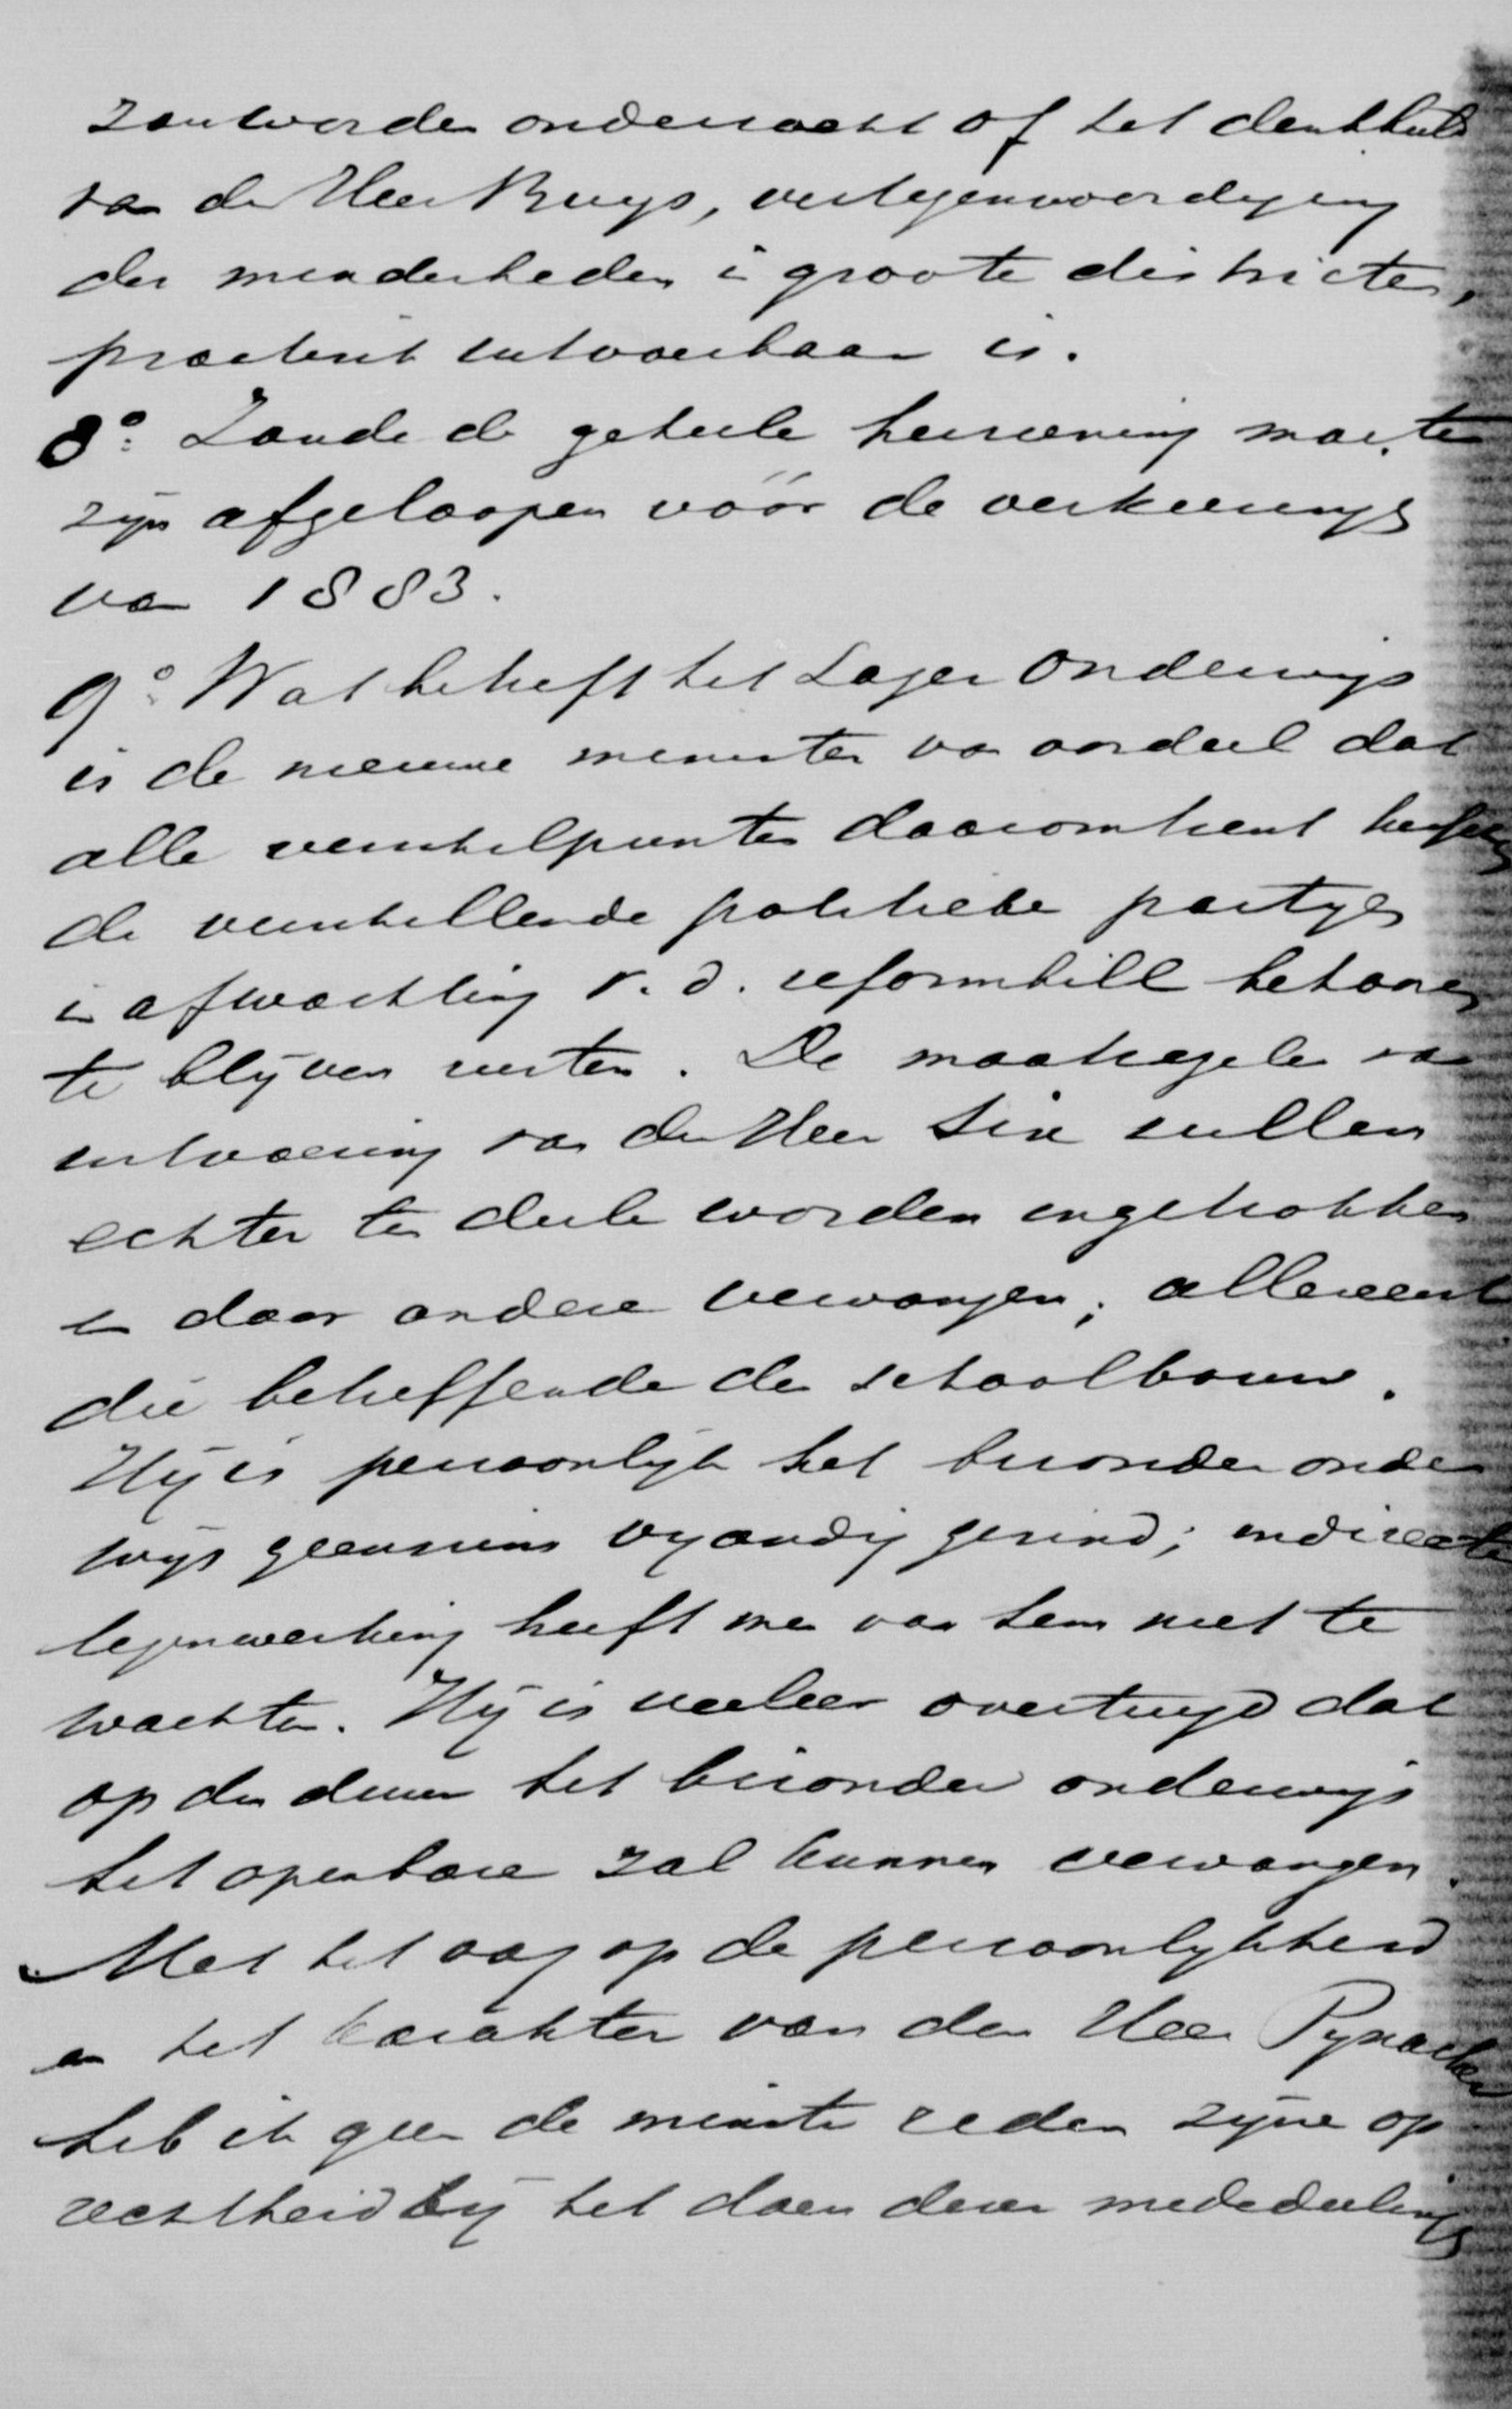 zou worden onderzocht of het denkbeeld
van den Heer Buys, vertegenwoordiging
der minderheden in groote districten,
practisch uitvoerbaar is.
8º. Zoude de geheele herziening moeten
zijn afgeloopen vóór de verkiezingen
van 1883.
9º. Wat betreft het Lager Onderwijs
is de nieuwe minister van oordeel dat
alle verschilpunten daaromtrent tusschen
de verschillende politieke partijen
in afwachting v. d. reformbill behooren
te blijven rusten. De maatregelen van
uitvoering van den Heer Six zullen
echter ten deele worden ingetrokken
en door andere vervangen; allereerst
die betreffende den schoolbouw.
Hij is persoonlijk het bijzonder onder
wijs geenszins vyandig gezind; indirecte
tegenwerking heeft men van hem niet te
wachten. Hij is veeleer overtuigd dat
op den duur het bijzonder onderwijs
het openbare zal kunnen vervangen.
Met het oog op de persoonlijkheid
en het karakter van den Heer Pynacker
heb ik geen de minste reden zijne op
rechtheid bij het doen dezer mededeelingen